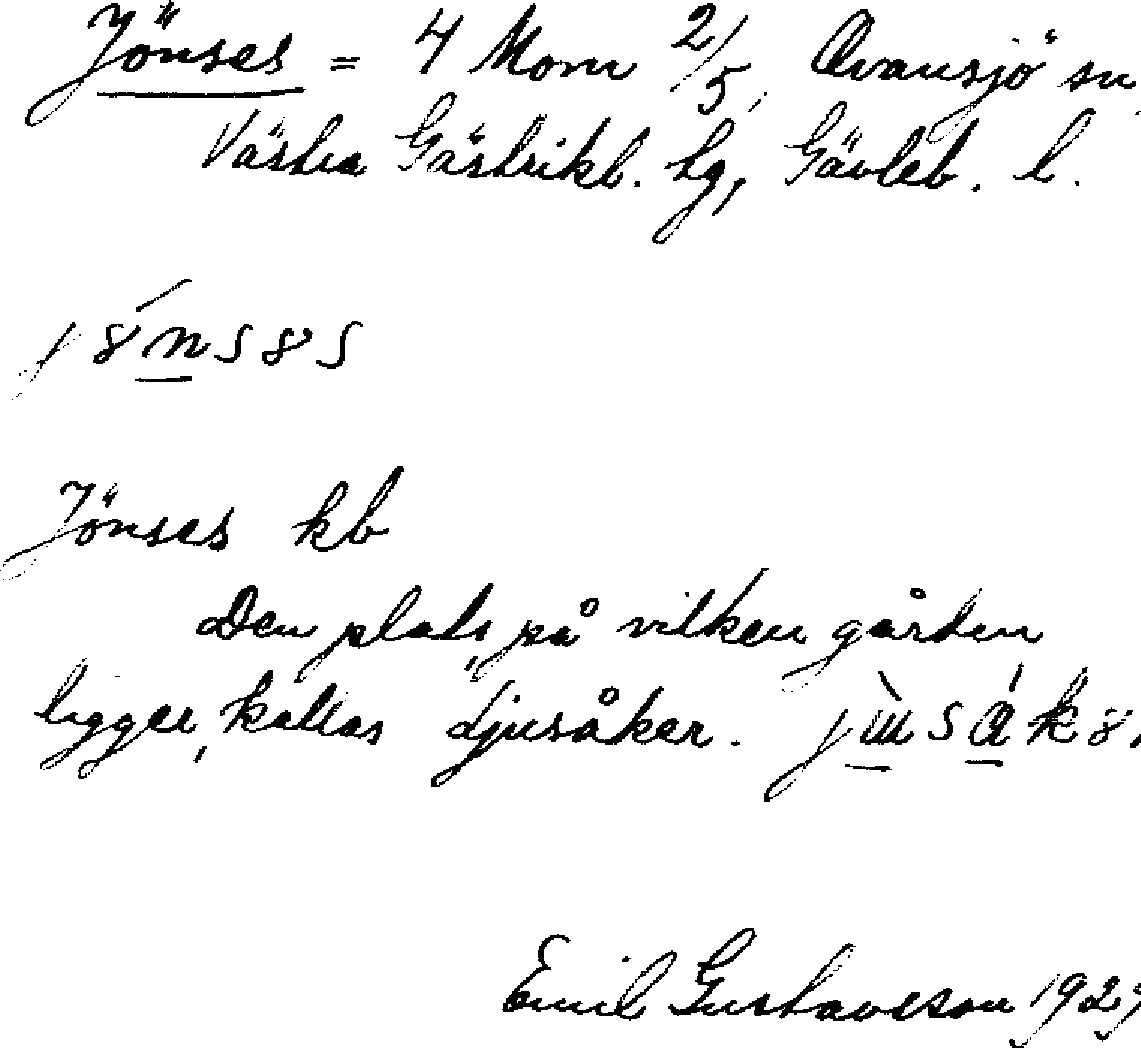 Jönses = 4 Mom 2/5, Ovansjö sn
Västra Gästrikl. hg, Gävleb. l.
Jönses kb
Den plats, på vilken gården
ligger, kallas Ljusåker.
Emil Gustavsson 192